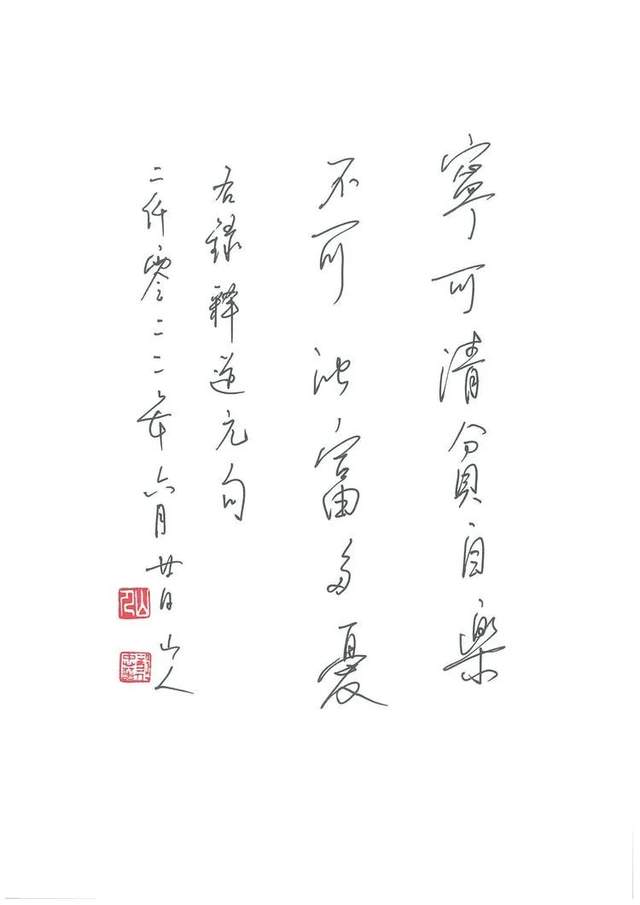 寧可清貧自樂
不可濁富多憂
右錄釋道元句
二仟零二二年六月廿日 山人
山人